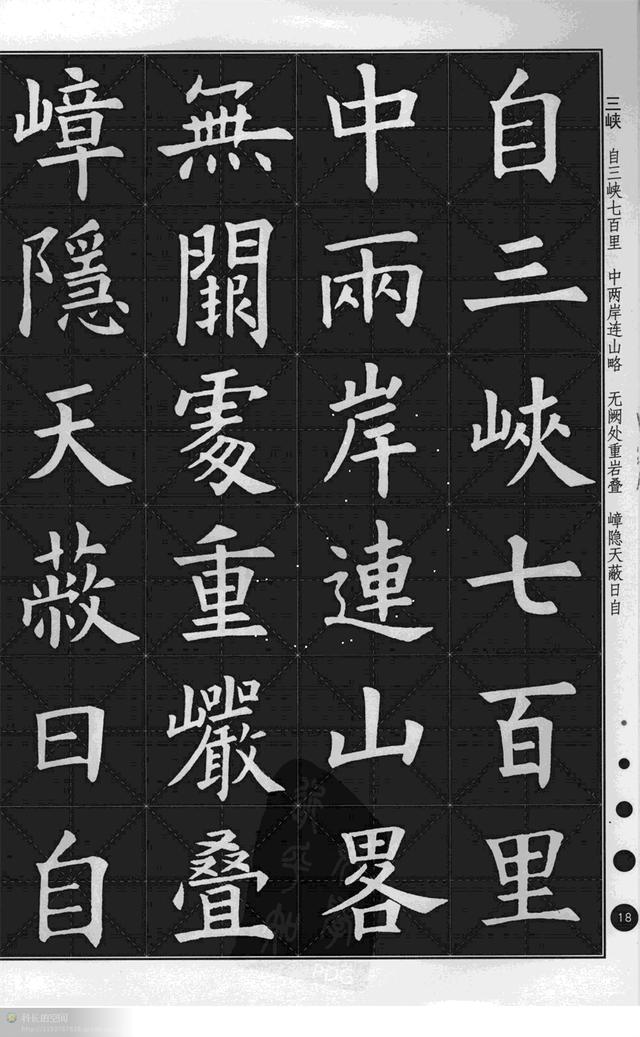 三峡 自三峡七百里 中两岸连山略 无阙处重岩叠 嶂隐天蔽日自
自三峽七百里
中兩岸連山畧
無闕處重巖叠
嶂隱天蔽日自
18
PDG
科长的空间